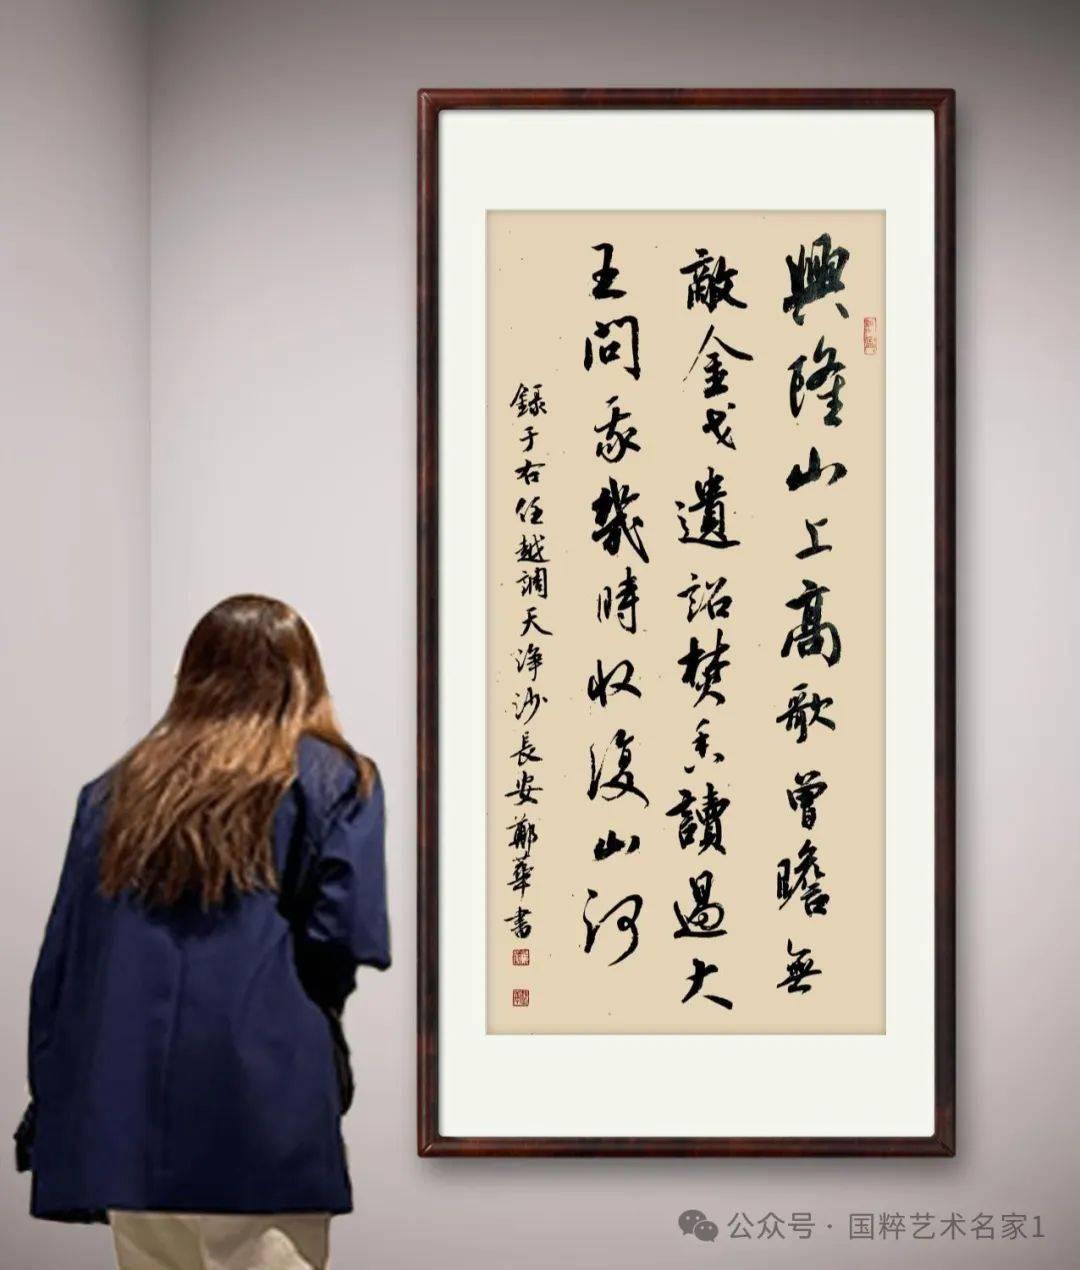 興隆山上高歌曾瞻無
敵金戈遺詔焚香讀過大
王問我幾時收復山河
錄于右任越調天淨沙長安鄭華書
公众号 · 国粹艺术名家1